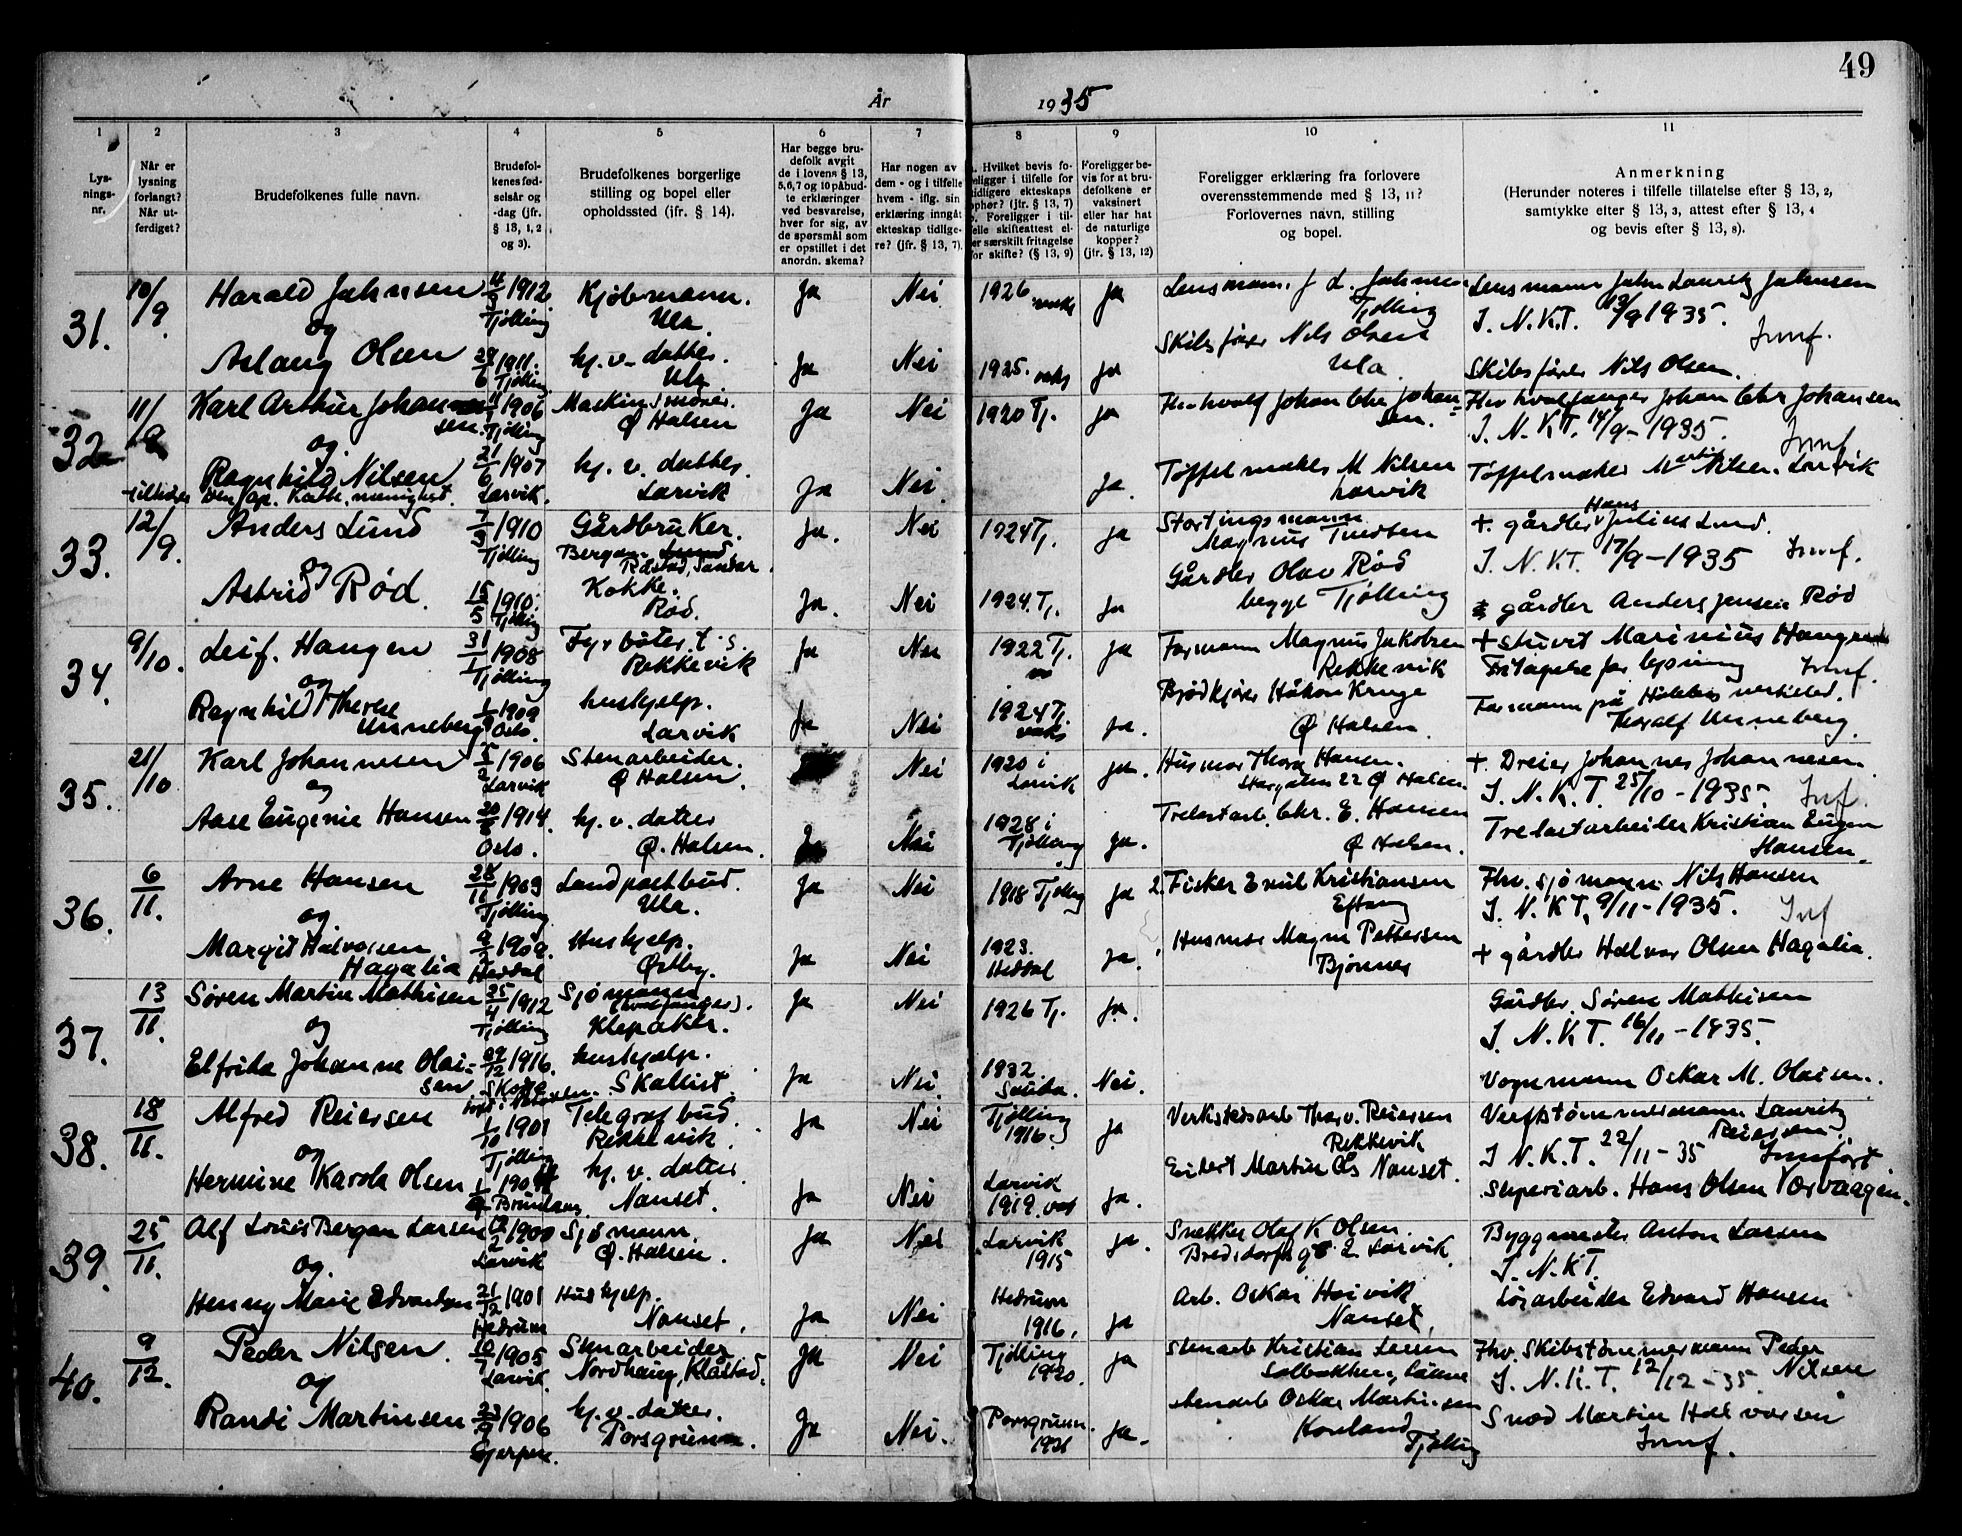 49
År 1935
1 2 3 4 5 6 7 8 9 10 11
Lys-
nings-
nr.
Når er
lysning
forlangt?
Når ut-
ferdiget?
Brudefolkenes fulle navn.
Brudefol-
kenes fød-
selsår og
-dag (jfr.
§ 13, 1, 2
og 3).
Brudefolkenes borgerlige
stilling og bopel eller
opholdssted (ifr. § 14).
Har begge bru-
defolk avgit
de i lovens § 13,
5,6,7 og 10 påbud-
te erklæringer
ved besvarelse,
hver for sig, av
de spørsmål som
er opstillet i det
anordn. skema?
Har nogen av
dem - og i tilfelle
hvem - iflg. sin
erklæring inngåt
ekteskap tidlige-
re? (jfr. § 13, 7).
Hvilket bevis fo-
religger i tilfelle for
tidligere ekteskaps
ophør? (jfr. § 13, 7)
Foreligger i til-
felle skifteattest el-
ler særskilt fritagelse
for skifte? (§ 13, 9)
Foreligger be-
vis for at bru-
defolkene er
vaksinert
eller har hat
de naturlige
kopper?
(jfr. § 13, 12)
Foreligger erklæring fra forlovere
overensstemmende med § 13, 11?
Forlovernes navn, stilling
og bopel.
Anmerkning
(Herunder noteres i tilfelle tillatelse efter § 13, 2,
samtykke efter § 13, 3, attest efter § 13, 4
og bevis efter § 13, 8).
31. 10/9 Harald Jahnsen 1912 Kjøbmann. Ja Nei 1926 ja Lensmann J. L. Jahnsen Lensmann John Lauritz Jahnsen
og Tjølling Ula. Tjølling I. N. K.T. 13/9 1935. Innf.
Aslaug Olsen 1911. hj. v. datter. Ja Nei 1925. ja Skibsfører Nils Olsen Skibsfører Nils Olsen.
Tjølling Ula Ula.
32 11/9 Karl Arthur Johannessen. 1906 Maskinsmører. Ja Nei 1920 Tj. ja Fhv hvalf Johan Chr Johan- Fhv hvalfanger Johan Chr Johansen
og Tjølling Ø Halsen sen. I. N. K.T. 14/9-1935. Innf
Ragnhild Nilsen 21/6 1907 hj. v. datter. Ja Nei. ja. Tøffelmaker M Nilsen Tøffelmaker Martin Nilsen. Larvik
tilhører den ap. Kath. menighet. Larvik. Larvik Larvik
33. 12/9. Anders Lund 7/3 1910 Gårdbruker. Ja. Nei 1924 Tj. ja Stortingsmann + gårdbr Hans Julius Lund.
og Tjølling Bergan. Råstad, Sandar. Magnus Tvedten I. N. KT. 17/9-1935 Innf.
Astrid Rød. 15/5 1910. Kokke. Ja. Nei 1924. Tj. ja Gårdbr Olav Rød gårdbr Anders Jensen Rød
Tjølling Rød. begge Tjølling
34. 9/10. Leif. Haugen 31/1 1908 Fyrbøter t. s. Ja Nei 1922 Tj. ja Formann Magnus Jakobsen + stuert Marinius Haugen
og Tjølling Rekkevik Rekkevik Fritagelse for lysning Innf.
Ragnhild Therese 1909 hushjelp. Ja Nei 1924 Tj. ja. Brødkjører Håkon Kruge Formann på
Unneberg Oslo. Larvik Ø Halsen. Thoralf Unneberg.
35. 21/10 Karl Johannesen 5/2 1906 Stenarbeider. Nei 1920 i ja. Husmor Thora Hansen. + Dreier Johannes Johannesen.
og Larvik Ø Halsen. Larvik Storgaten 22 Ø Halsen. I. N. K. T. 25/10-1935. Inf.
Aase Eugenie Hansen 1914. hj. v. datter Ja Nei 1928 i ja. Trelastarb. Chr. E. Hansen Trelastarbeider Kristian Eugen
Oslo. Ø. Halsen. Tjølling Ø Halsen. Hansen.
36. 6/11. Arne Hansen 28/11 1903 Landpostbud. Ja Nei 1918 Tjølling ja Fisker Emil Kristiansen Fhv. sjømann Nils Hansen
og Tjølling Ula. Eftang I. N. KT, 9/11-1935. Inf
Margit Halvorsen 1909. Hushjelp. Ja Nei 1923. ja. Husmor Magna Pettersen + gårdbr Halvor Olsen Hagalia.
Hagalia Heddal Østby. Heddal Bjønnes
37. 13/11. Søren Martin Mathisen 25/4 1912 Sjømann Ja Nei 1926 Tj. ja. Gårdbr. Søren Mathisen
og Tjølling (hvalfanger). Klepaker. I. N. K T. 16/11-1935.
Elfrida Johanne Olai- 1916. hushjelp. Ja Nei. 1932. Nei. Vognmann Oskar M. Olaisen.
sen Skallist. Sauda.
38. 18/11. Alfred Reiersen 1/10 1901 Telegrafbud. Ja Nei Tjølling ja Verkstedsarb Thorv. Reiersen Verftstømmermann Lauritz
og Tjølling Rekkevik. 1916. Rekkevik Reiersen I N. K. T. 22/11-35 Innført
Hermine Karola Olsen 190 hj. v. datter Ja Nei Larvik ja. Martin Ols Nanset. Sliperiarb. Hans Olsen
Brunlanes Nanset. 1919.
39. 25/11. Alf Louis Bergan Larsen 1900 Sjømann. Ja Nei Larvik ja. Snekker Olaf K Olsen Byggmester Anton Larsen
og. Larvik Ø. Halsen. 1915 Bredsdorfs g 2 Larvik. I. N. KT
Henny Marie Edvardsen 21/12 1901 Hushjelp. Ja Nei Hedrum ja Arb. Oskar Hoivik Edvard Hansen
Hedrum Nanset. 1916. Nanset.
40. 9/12. Peder Nilsen. 10/7 1905 Stenarbeider Ja Nei Tjølling ja Stenarb Kristian Larsen Fhv. Skibstømmermann Peder
og Larvik Nordhaug, Klåstad. 1920. Nilsen I. N. K. T. 12/12-35.
Randi Martinsen 23/9 1906 hj. v. datter. Ja Nei. Porsgrunn. ja. stenarb Oskar Martinsen Smed Martin Halvorsen
Gjerpen. Porsgrunn. 1921 Tjølling Innf.